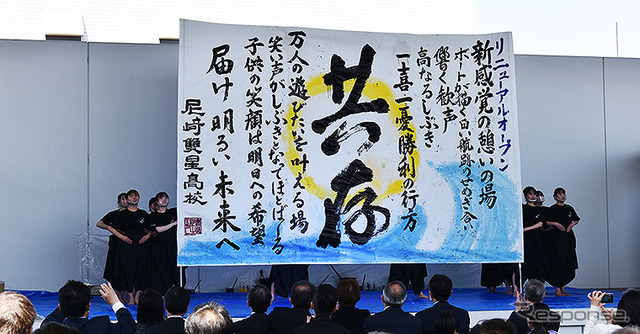 リニューアルオープン
新感覚の憩いの場
ボートが描く白い航路のせめぎ合い
響く歓声
高なるしぶき
一喜一憂勝利の行方
共存
万人の遊びたいを叶える場
笑い声がしぶきとなってほとばしる
子供の笑顔は明日への希望
届け 明るい未来へ
尼崎双星高校
Response.